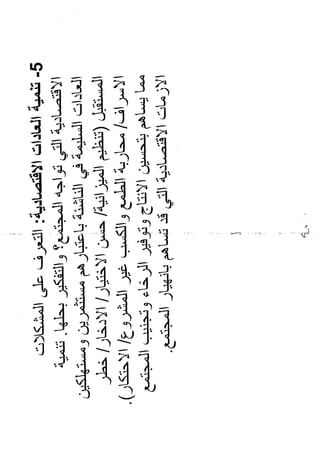 5- تنمية العادات الاقتصادية: التعرف على المشكلات
الاقتصادية التي تواجه المجتمع؟ والتفكير بحلها. تنمية
العادات السليمة في الناشئة باعتبارهم مستثمرين ومستهلكين
المستقبل (تنظيم الميزانية/ حسن الاختيار/ الادخار/ خطر
الاسراف/ محاربة الطمع والكسب غير المشروع/ الاحتكار).
مما يساهم بتحسين الانتاج وتوفير الرخاء وتجنيب المجتمع
الازمات الاقتصادية التي قد تساهم بانهيار المجتمع.